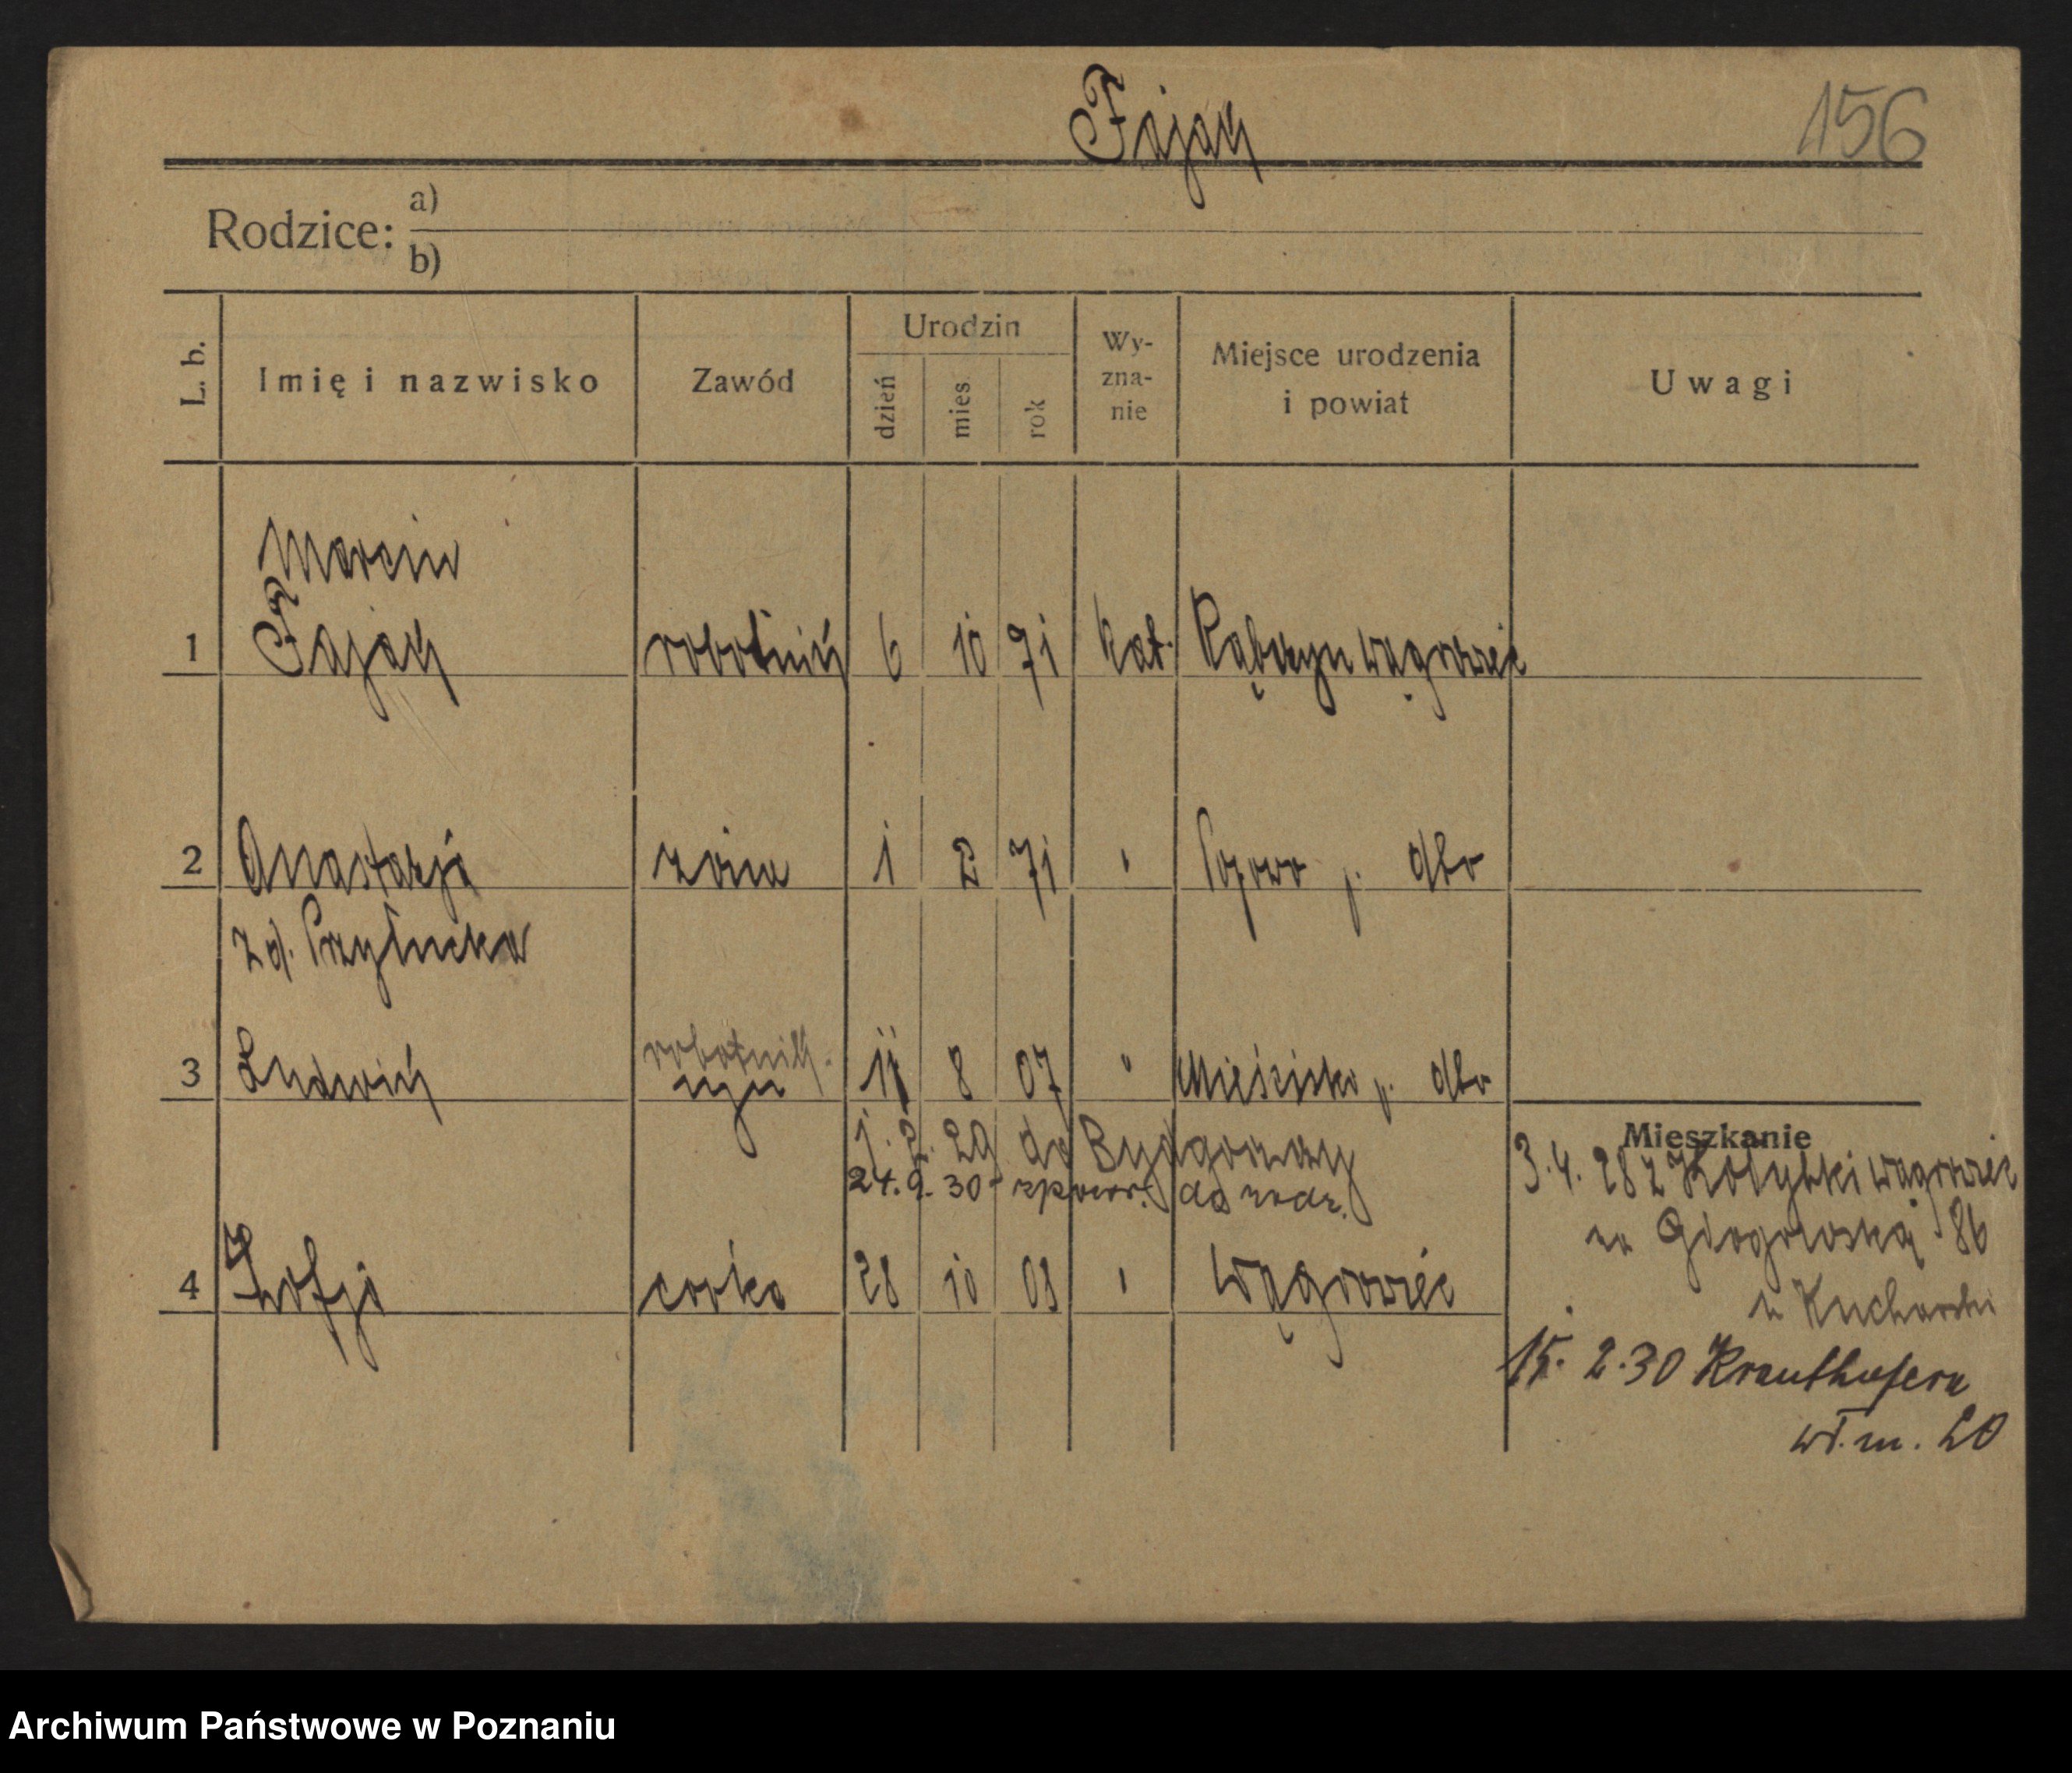 Fajak
156
Rodzice:
a)
b)
L. b.
Imię i nazwisko
Zawód
Urodzin
dzień
mies.
rok
Wy-
zna-
nie
Miejsce urodzenia
i powiat
Uwagi
Marcin
1 Fajak robotnik 6 10 71 kat. Rąbczyn wągrowiec
2 Anastazja żona 1 2 71 " p. dto
zd. Przyłucka
robotnik.
3 Ludwik syn 11 8 07 " Mieścisko p. dto
1. 2. 29 do Bydgoszczy
24. 9. 30 - zpowr. do rodz.
4 Zofja córka 28 10 09 " Wągrowiec
Mieszkanie
3. 4. 28 z Kołybki wągrowiec
na Głogowską 86
u Kucharski
15. 2. 30 Krauthofera
wł. m. 20
Archiwum Państwowe w Poznaniu